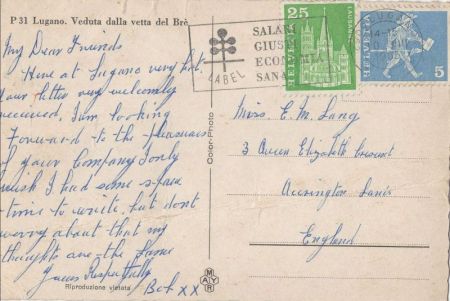 P 31 Lugano. Veduta dalla vetta del Brè
My Dear Friends
Here at Lugano very hot.
Your letter very welcomly
received, I am looking
forward to the pleasures
of your Company I only
wish I had some spare
time to write, but dont
worry about that my
thought are the same
Yours Respectfully
Bob XX
Riproduzione vietata
Color-Photo
MAYR
SALAR
GIUS
ECON
SANA
LABEL
25
HELVETIA
LAUSANNE
HELVETIA
5
Miss. E. M. Lang
3 Queen Elizabeth Crescent
Accrington Lancs
England